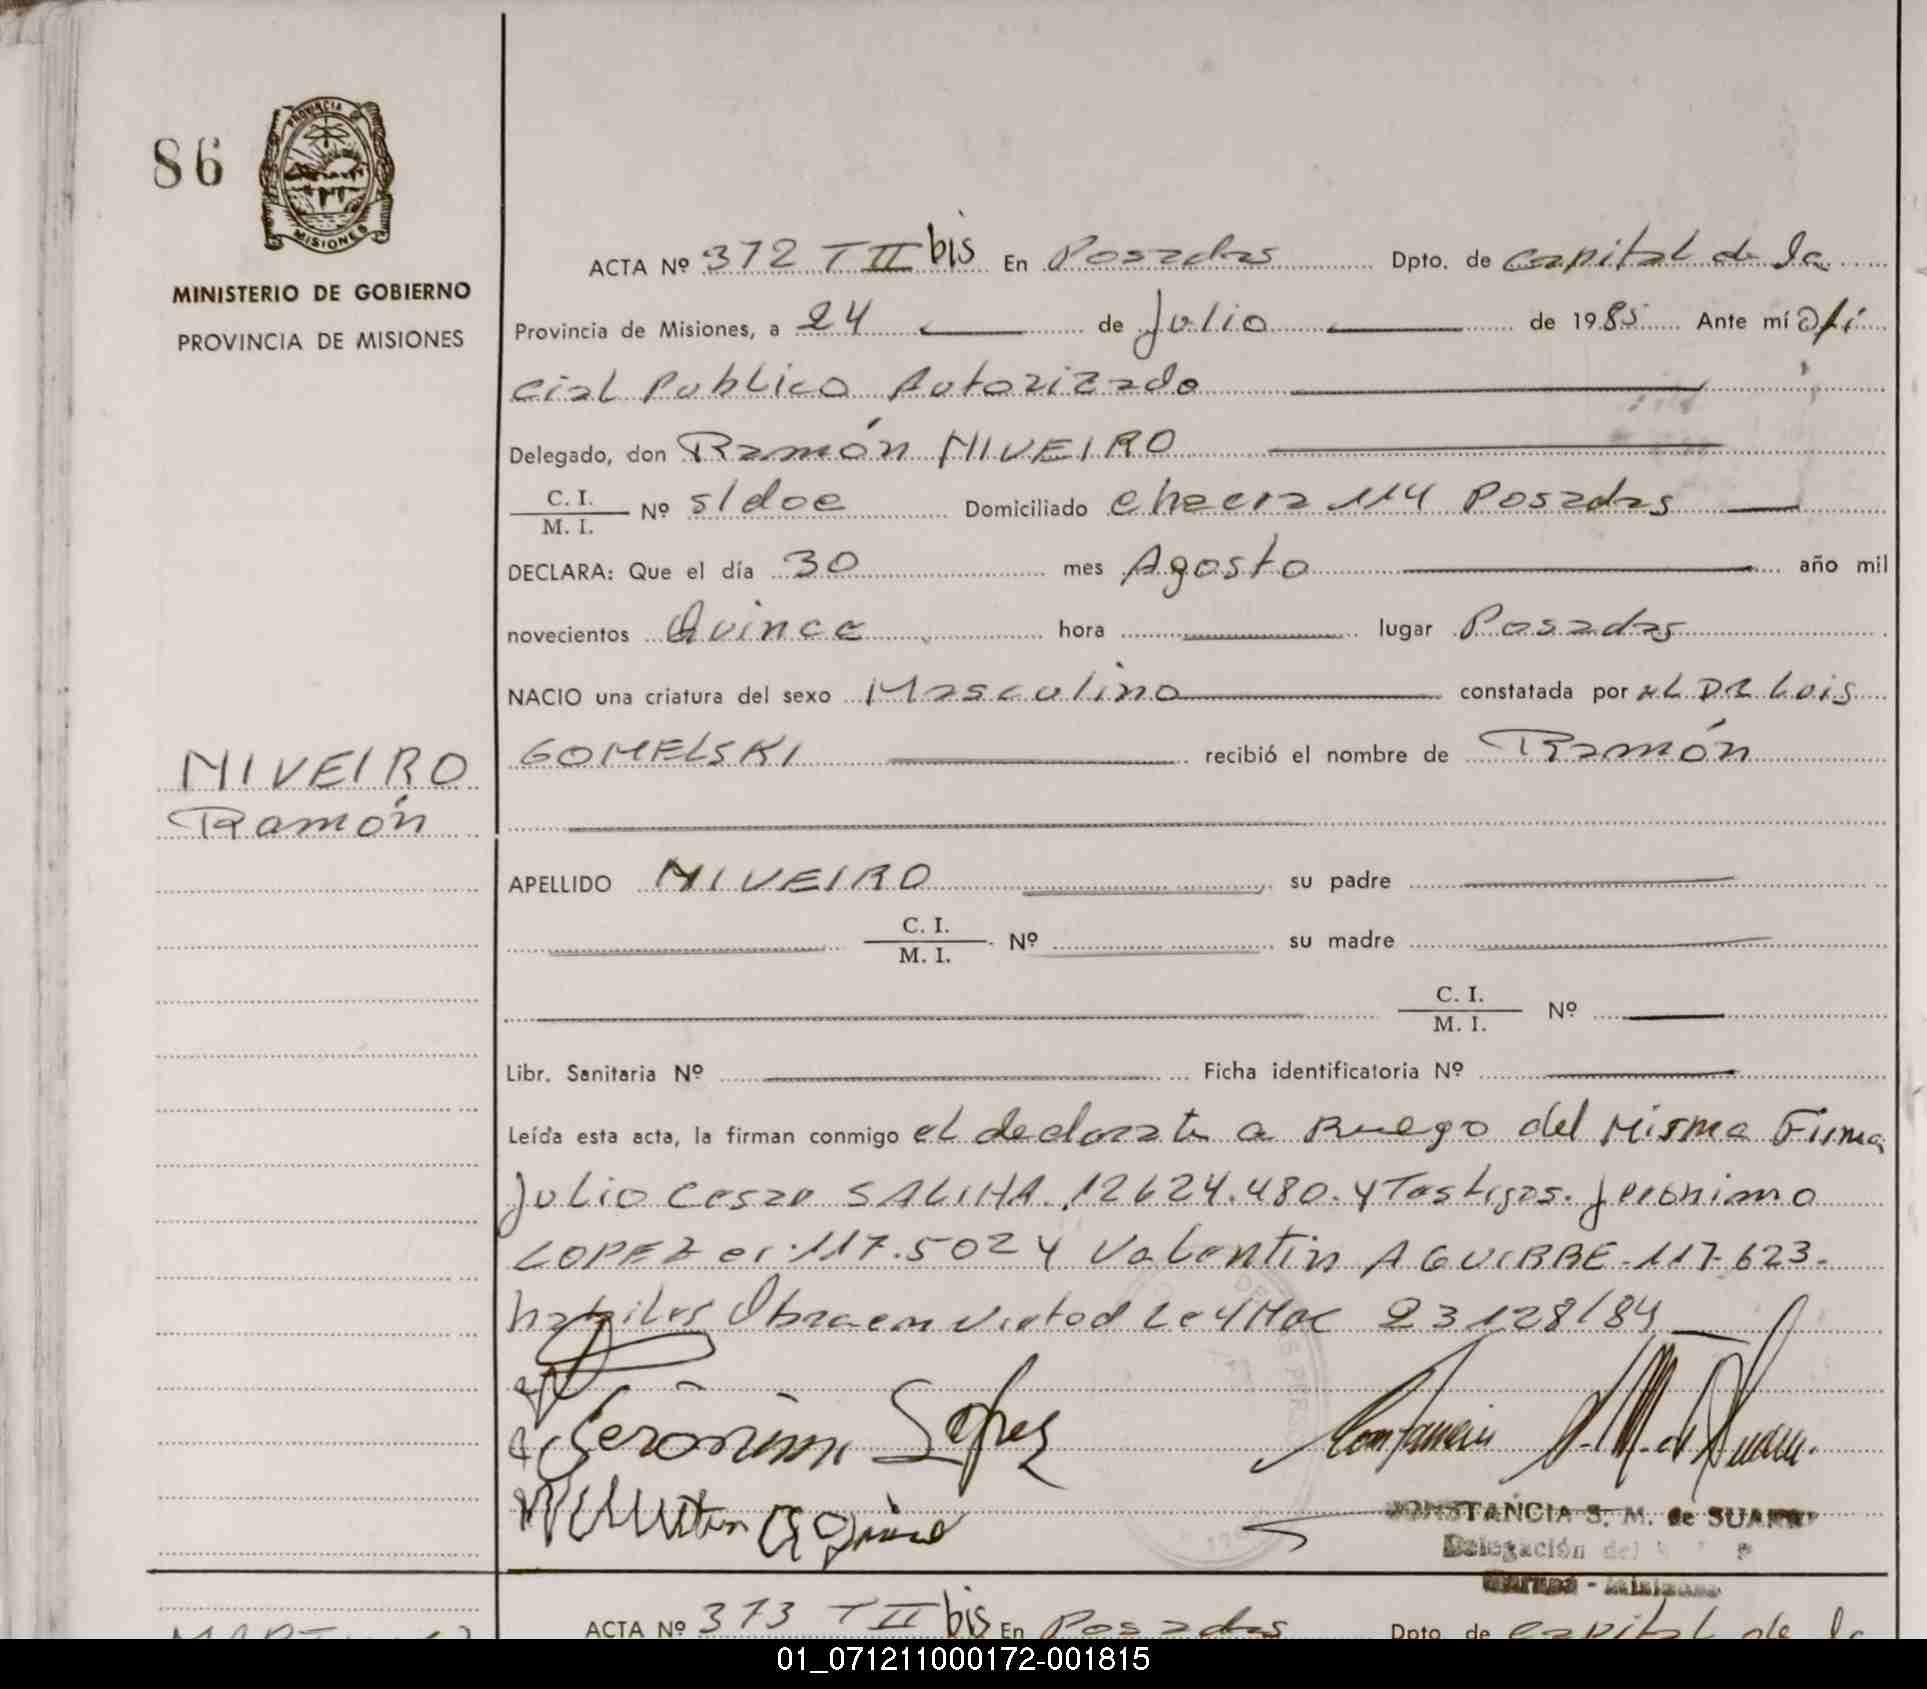 86
PROVINCIA DE
MISIONES
MINISTERIO DE GOBIERNO
PROVINCIA DE MISIONES
ACTA Nº 372 T II bis En Posadas Dpto. de capital de la
Provincia de Misiones, a 24 de Julio de 1985 Ante mí Ofi
cial Publico Autorizado
Delegado, don Ramón NIVEIRO
C. I.
M. I. Nº s/doc Domiciliado chacra 114 Posadas
DECLARA: Que el día 30 mes Agosto año mil
novecientos Quince hora lugar Posadas
NACIO una criatura del sexo Masculino constatada por el DR Luis
GOMELSKI recibió el nombre de Ramón
NIVEIRO
Ramón
APELLIDO NIVEIRO su padre
C. I.
M. I. Nº su madre
C. I.
M. I. Nº
Libr. Sanitaria Nº Ficha identificatoria Nº
Leída esta acta, la firman conmigo el declarate a Ruego del Misma Firma
Julio Cesar 12624.480. y Testigos. Jeronimo
LOPEZ ci. 117.502 y Valentin AGUIRRE - 117-623-
habiles Obra en virtod Ley Nac 23128/84
Gerónimo López
CONSTANCIA S. M. de SUAREZ
Delegación del
ACTA Nº 373 T II bis En Posadas Dpto. de capital de la
01_071211000172-001815